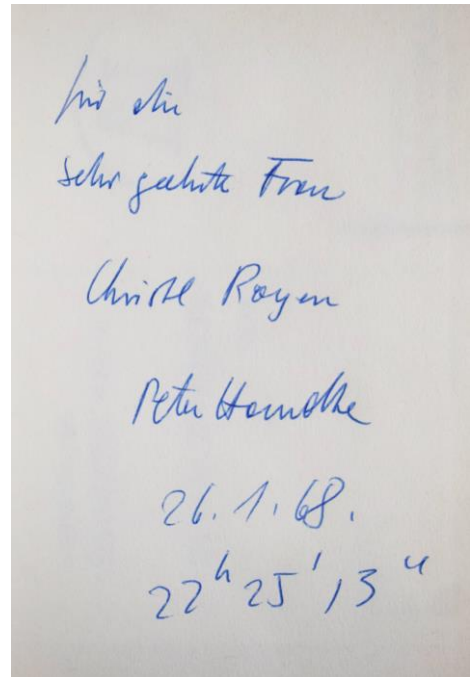 für die
sehr geehrte Frau
Christl Royen
Peter Handke
26.1.68.
22h 25' 13"